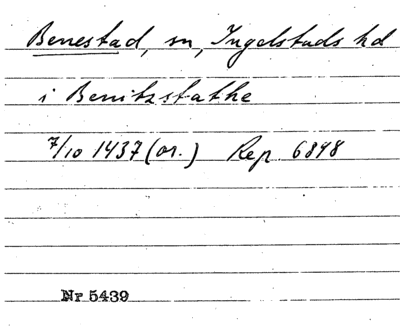 Benestad, sn, Ingelstads hd
i Benitzstathe
7/10 1437 (or.) Rep. 6898
Nr 5439